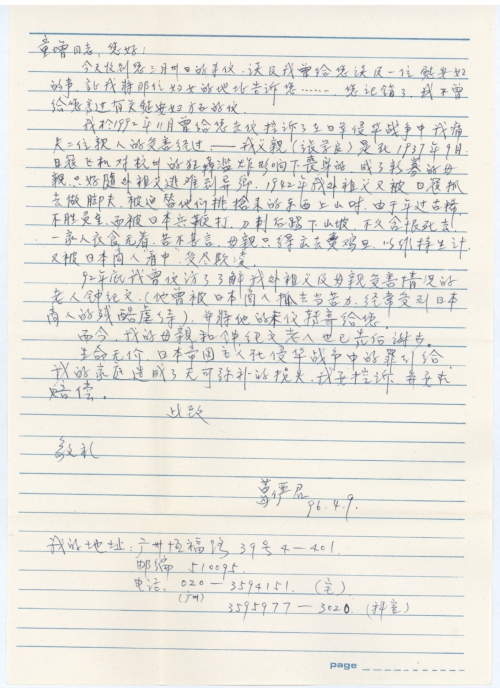 童增同志，您好！
今天收到您三月卅日的来信，谈及我曾给您谈及一位慰安妇
的事，记我将那位妇女的地址告诉您……，您记错了，我不曾
给您寄过有关慰安妇方面的信。
我于1992年11月曾给您去信控诉了在日军侵华战争中我痛
失二位亲人的受害经过——我父亲(张学良)是于1937年9月
日寇飞机对杭州的狂轰滥炸影响下丧身的，成了新寡的母
亲只好随外祖父逃难到异乡。1942年我外祖父又被日寇抓
去做脚夫，被迫替他们排抢来的东西上山时，由于年过古稀，
不胜负重，而被日本兵鞭打，刀刺后踢下山坡，不久含恨死去，
一家人衣食无着，苦不甚言，母亲只得卖鸡旦，以维持生计，
又被日本商人看中，受尽欺凌。
92年底我曾信访了了解我外祖父及母亲受害情况的
老人钟纪文(他曾被日本商人抓去当苦力，经常受到日本
商人的残酷虐待)，并将他的来信转寄给您。
而今，我的母亲和钟纪文老人也已先后谢世。
生命无价，日本帝国主义在侵华战争中的罪行给
我的家庭造成了无可弥补的损失，我要控诉，并要求
赔偿。
此致
敬礼
96.4.9.
我的地址：广州恒福路39号4—401.
邮编 510095.
电话：020—3594151. (宅)
(广州)
3595977—3020. (科室)
page